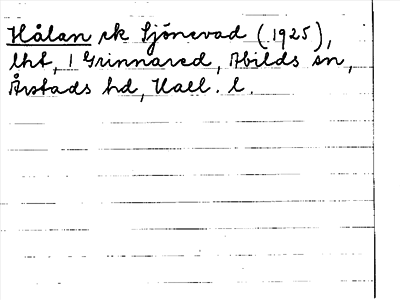 Hålan rk Sjönevad (1925),
lht, 1 Grinnared, Abilds sn,
Årstads hd, Hall. l.